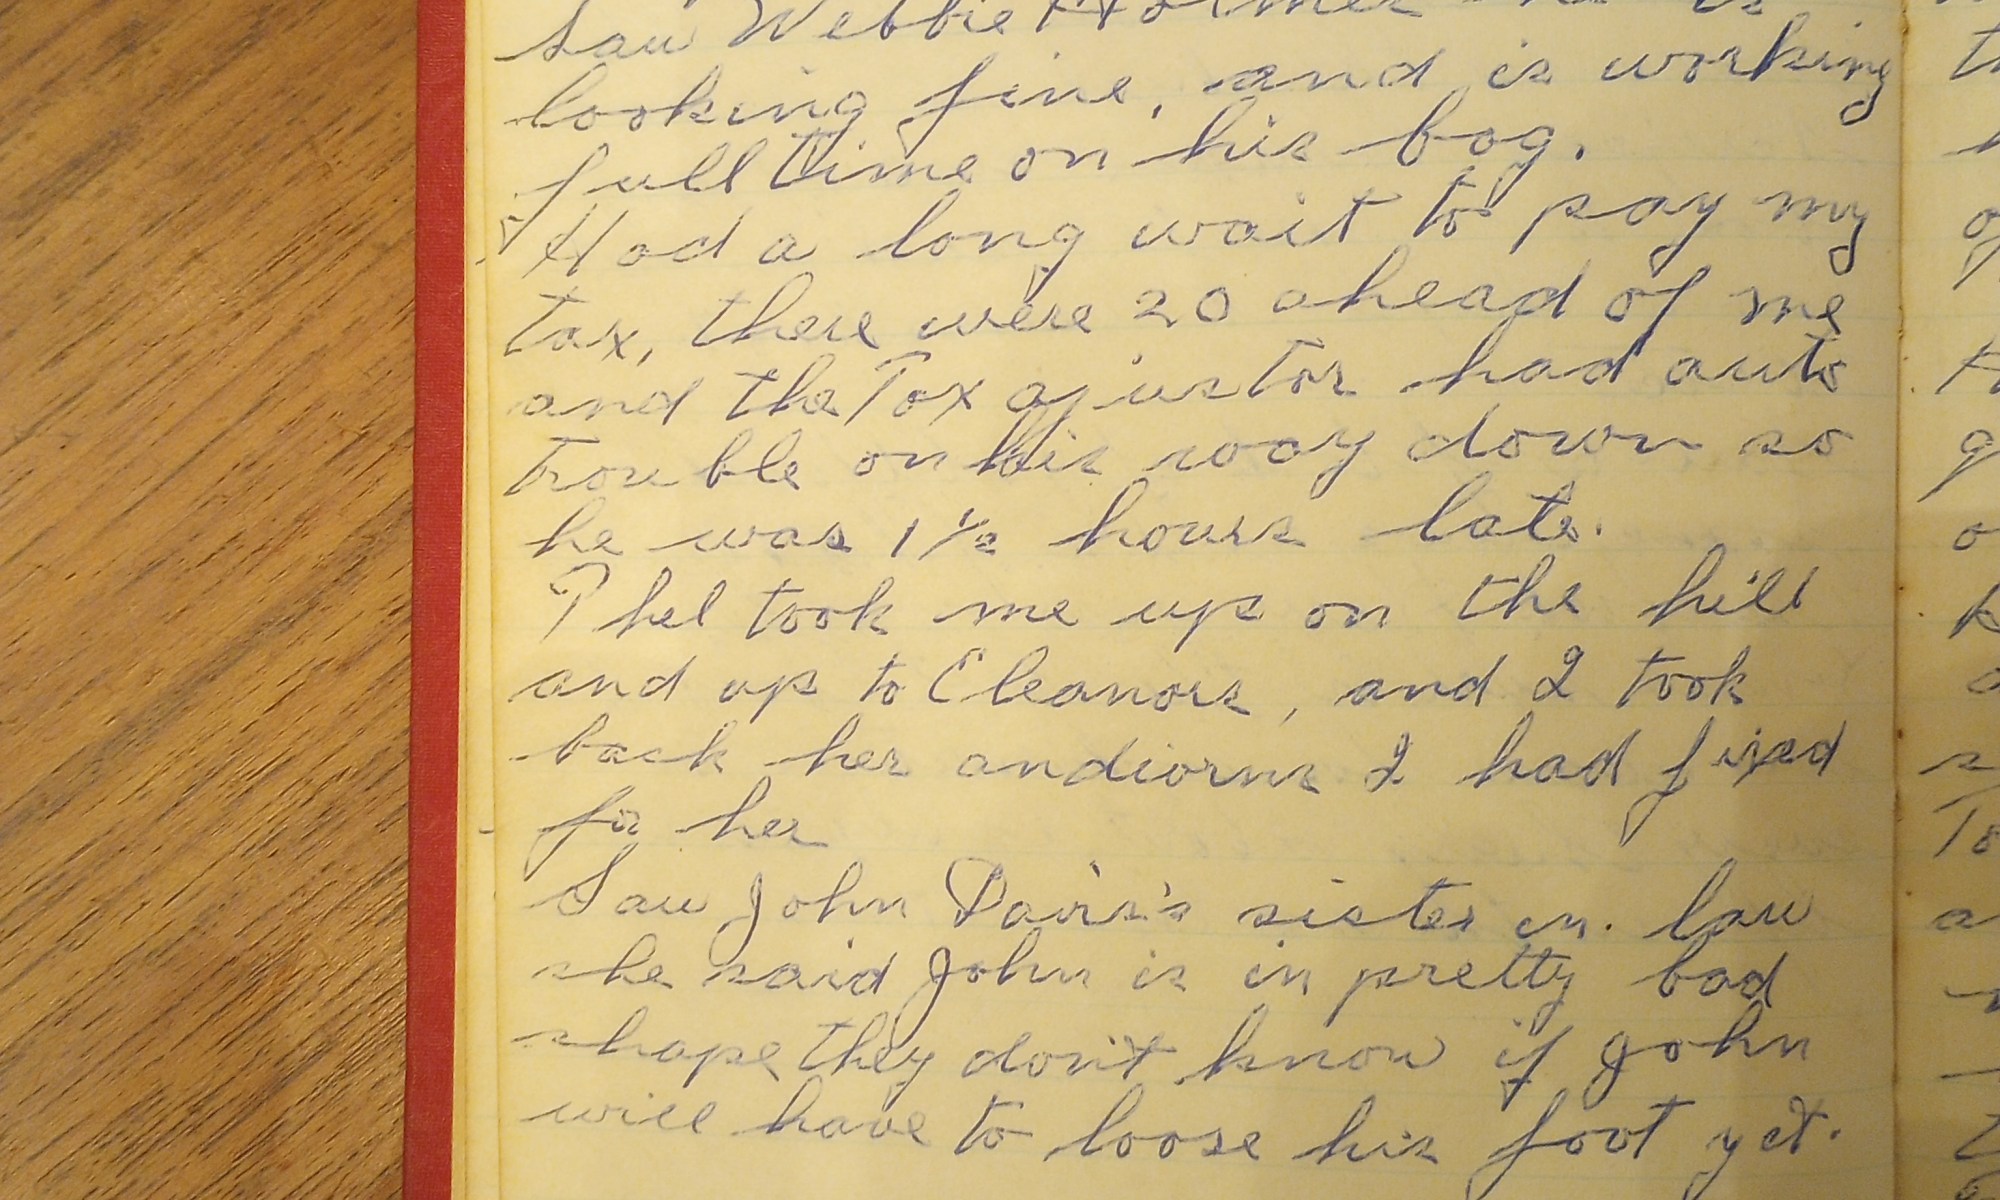 Saw Webbie Holmes he is
looking fine, and is working
full time on his bog.
Had a long wait to pay my
tax, there were 20 ahead of me
and the Tax ajustor had auto
trouble on his way down so
he was 1 1/2 hours late.
Phel took me up on the hill
and up to Eleanors, and I took
back her andiorns I had fixed
for her
Saw John Davis's sister in. law
she said John is in pretty bad
shape they don't know if John
will have to loose his foot yet.